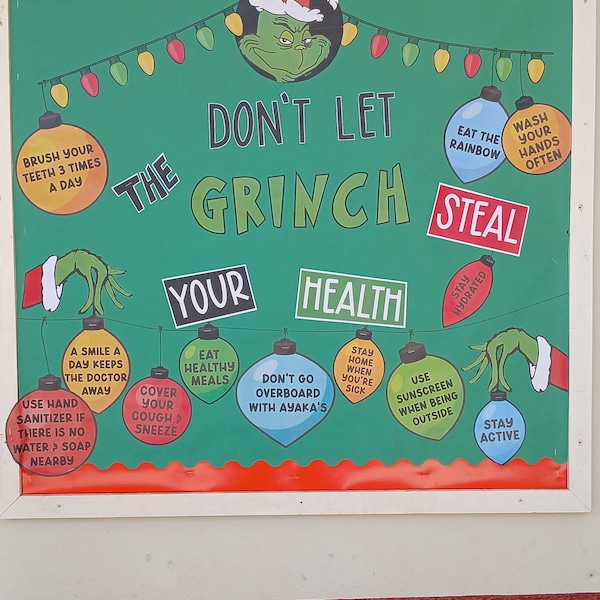 DON'T LET
THE
GRINCH
STEAL
YOUR
HEALTH
BRUSH YOUR
TEETH 3 TIMES
A DAY
EAT THE
RAINBOW
WASH
YOUR
HANDS
OFTEN
STAY
HYDRATED
A SMILE A
DAY KEEPS
THE DOCTOR
AWAY
EAT
HEALTHY
MEALS
DON'T GO
OVERBOARD
WITH AYAKA'S
STAY
HOME
WHEN
YOU'RE
SICK
USE
SUNSCREEN
WHEN BEING
OUTSIDE
STAY
ACTIVE
COVER
YOUR
COUGH &
SNEEZE
USE HAND
SANITIZER IF
THERE IS NO
WATER & SOAP
NEARBY